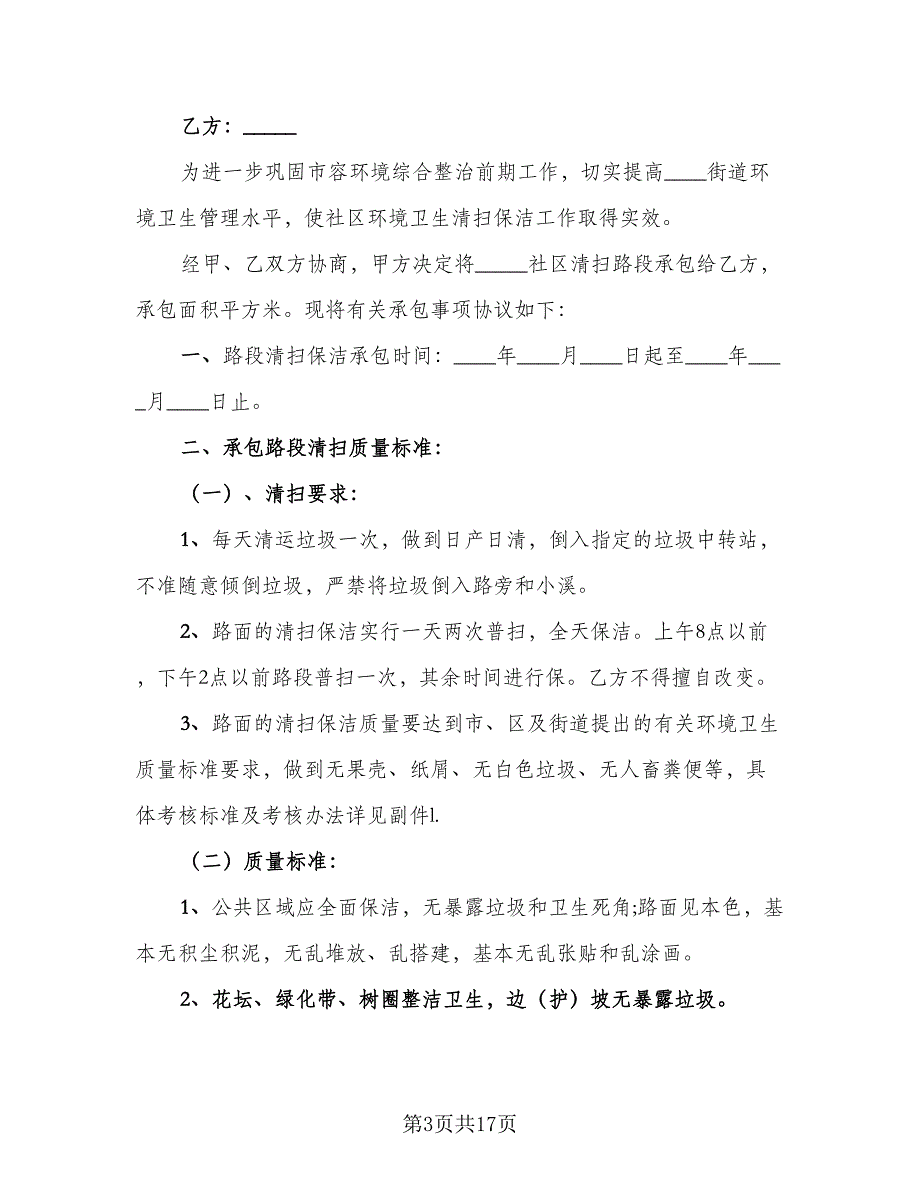 乙方：_____
为进一步巩固市容环境综合整治前期工作，切实提高____街道环
境卫生管理水平，使社区环境卫生清扫保洁工作取得实效。
经甲、乙双方协商，甲方决定将_____社区清扫路段承包给乙方，
承包面积平方米。现将有关承包事项协议如下：
一、路段清扫保洁承包时间：____年____月____日起至____年___
_月____日止。
二、承包路段清扫质量标准：
（一）、清扫要求：
1、每天清运垃圾一次，做到日产日清，倒入指定的垃圾中转站，
不准随意倾倒垃圾，严禁将垃圾倒入路旁和小溪。
2、路面的清扫保洁实行一天两次普扫，全天保洁。上午8点以前
，下午2点以前路段普扫一次，其余时间进行保。乙方不得擅自改变。
3、路面的清扫保洁质量要达到市、区及街道提出的有关环境卫生
质量标准要求，做到无果壳、纸屑、无白色垃圾、无人畜粪便等，具
体考核标准及考核办法详见副件l.
（二）质量标准：
1、公共区域应全面保洁，无暴露垃圾和卫生死角;路面见本色，基
本无积尘积泥，无乱堆放、乱搭建，基本无乱张贴和乱涂画。
2、花坛、绿化带、树圈整洁卫生，边（护）坡无暴露垃圾。
第3页共17页